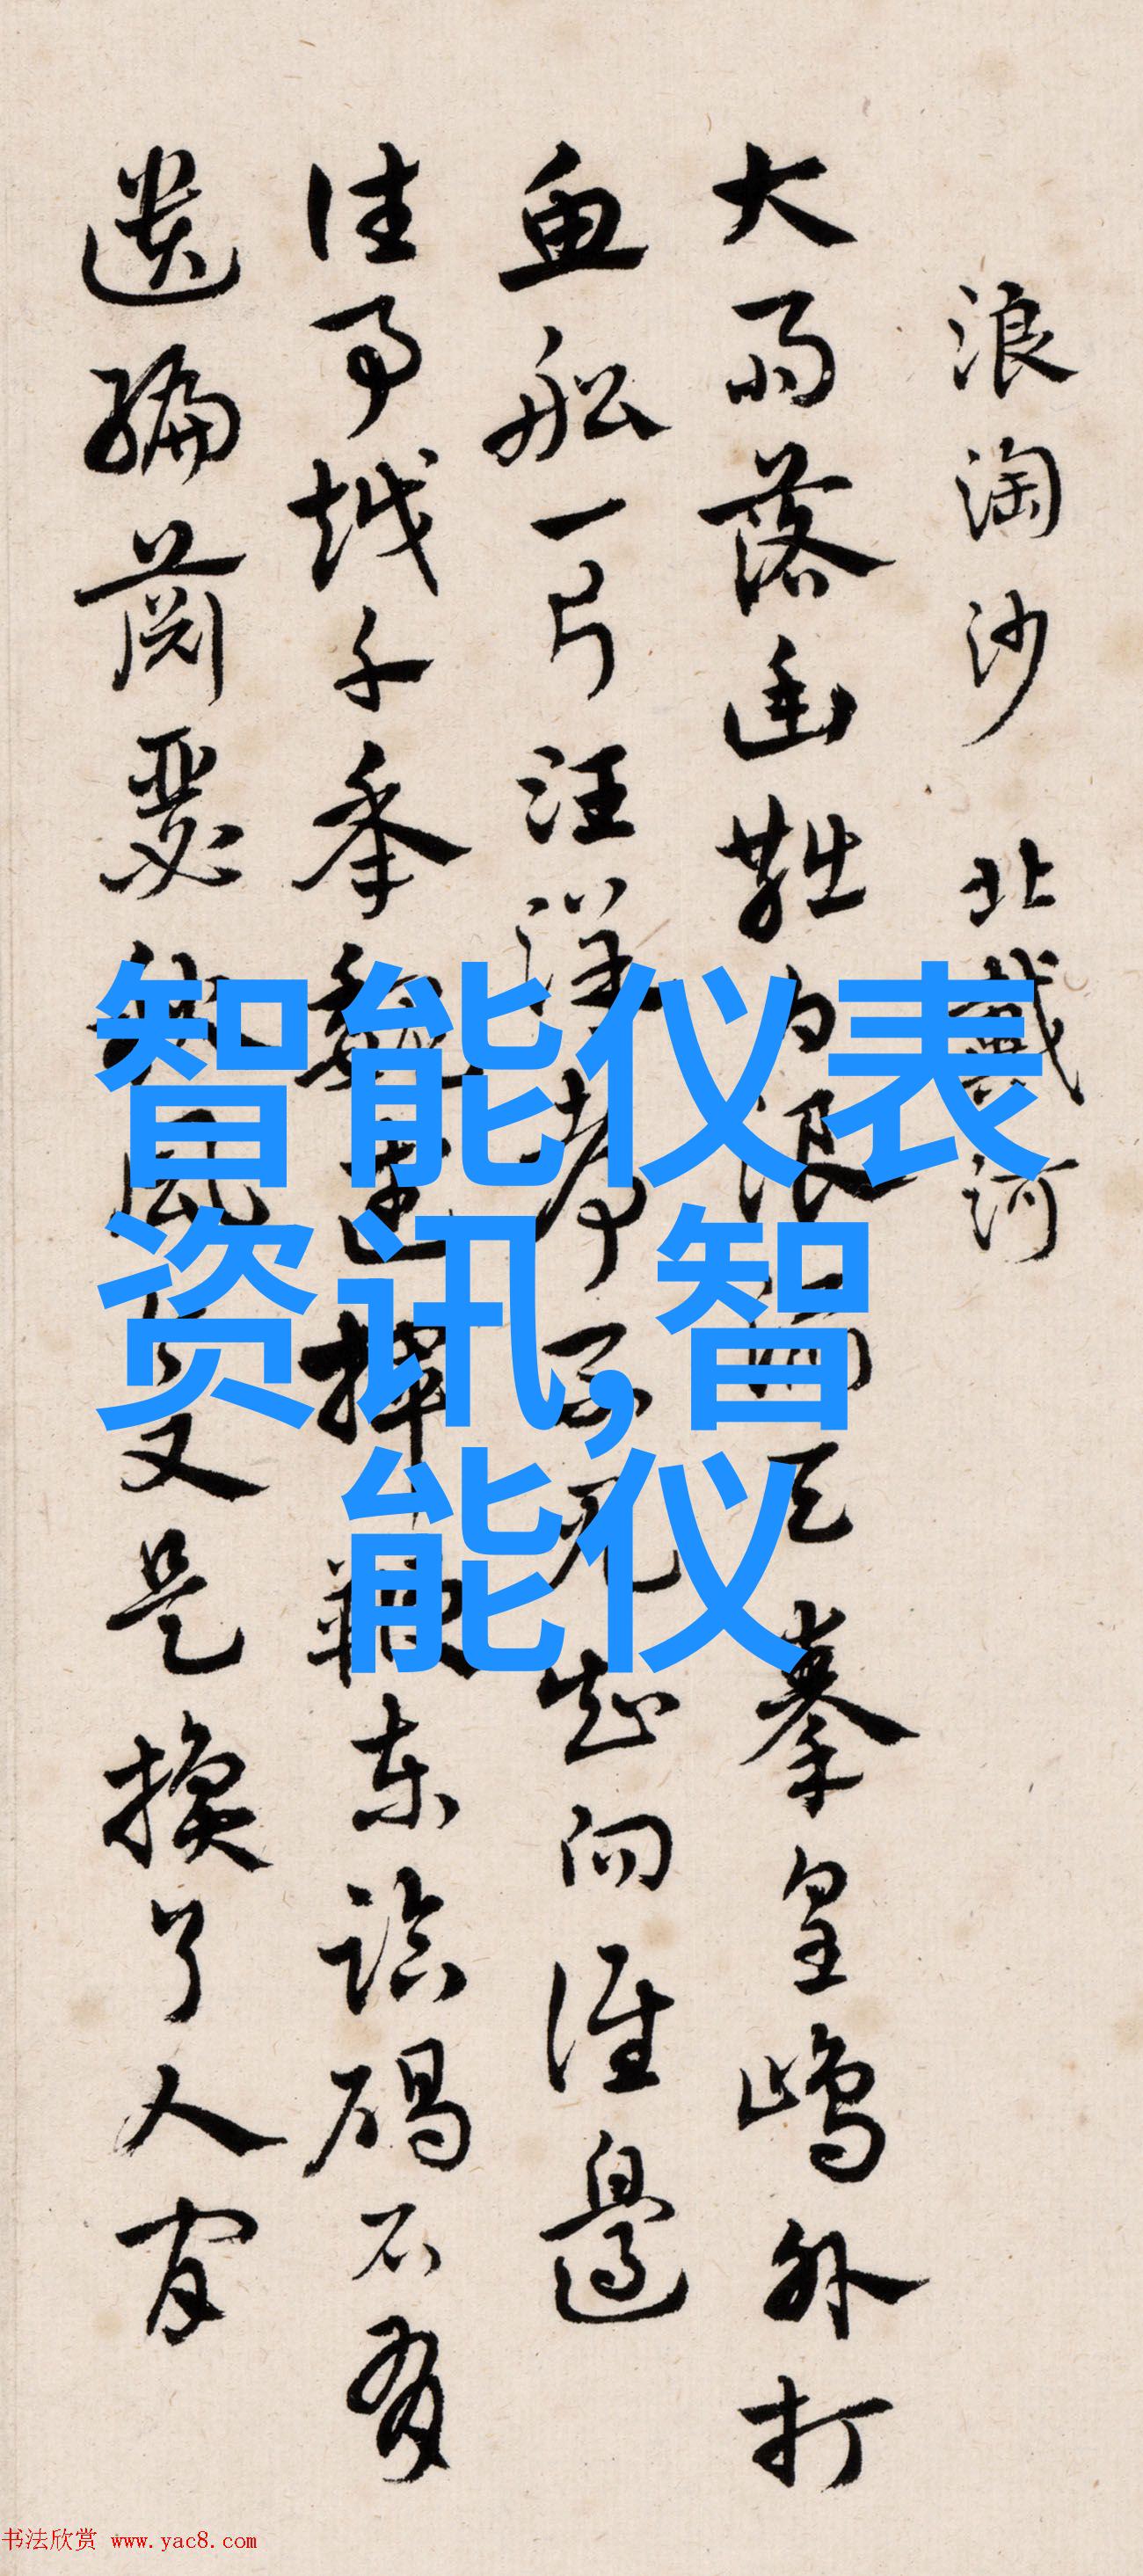 浪淘沙 北戴河
大雨落幽燕白浪滔天秦皇嶋外打
魚船一片汪洋都不見知向誰邊
往事越千年魏武揮鞭東臨碣石有
遺編蕭瑟秋風今又是換了人間
智能仪表
资讯,智
能仪
书法欣赏 www.yac8.com